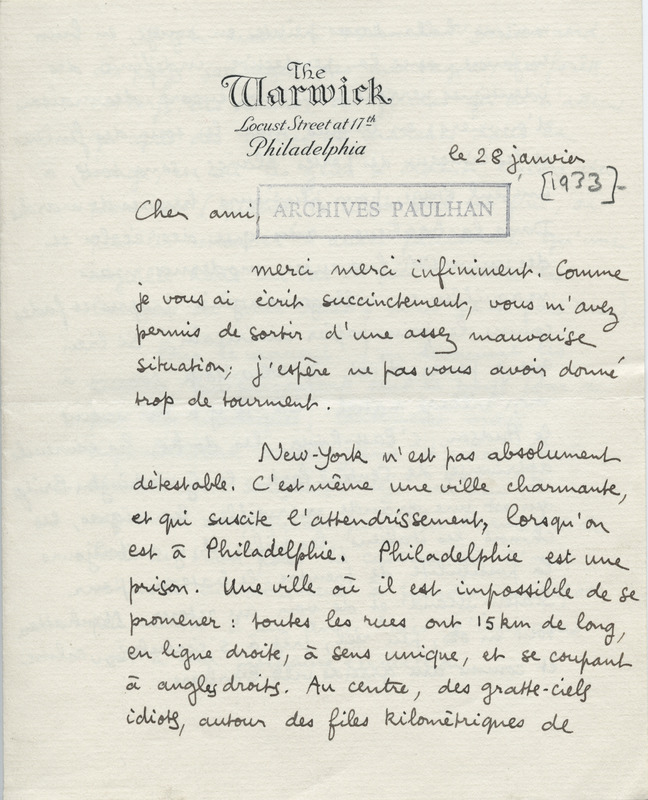 The
Warwick
Locust Street at 17th
Philadelphia
le 28 janvier
[1933]-
Cher ami,
ARCHIVES PAULHAN
merci merci infiniment. Comme
je vous ai écrit succinctement, vous m'avez
permis de sortir d'une assez mauvaise
situation; j'espère ne pas vous avoir donné
trop de tourment.
New-York n'est pas absolument
détestable. C'est même une ville charmante,
et qui suscite l'attendrissement, lorsqu'on
est à Philadelphie. Philadelphie est une
prison. Une ville où il est impossible de se
promener : toutes les rues ont 15 km de long,
en ligne droite, à sens unique, et se coupant
à angles droits. Au centre, des gratte-ciels
idiots, autour des files kilométriques de